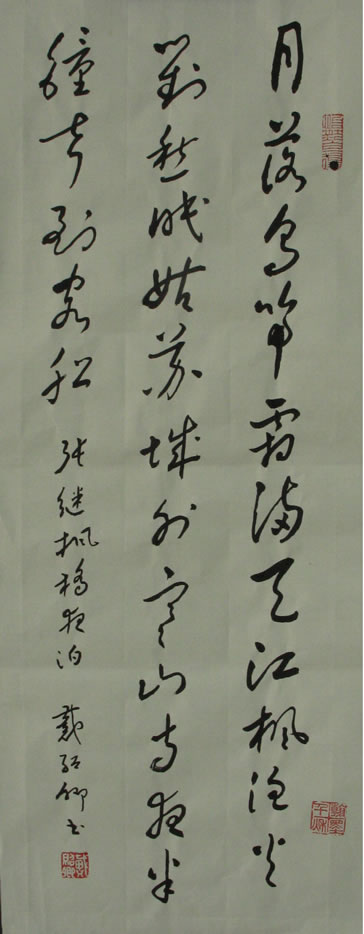 月落乌啼霜满天江枫渔火
对愁眠姑苏城外寒山寺夜半
钟声到客船
张继枫桥夜泊
戴绍卿书